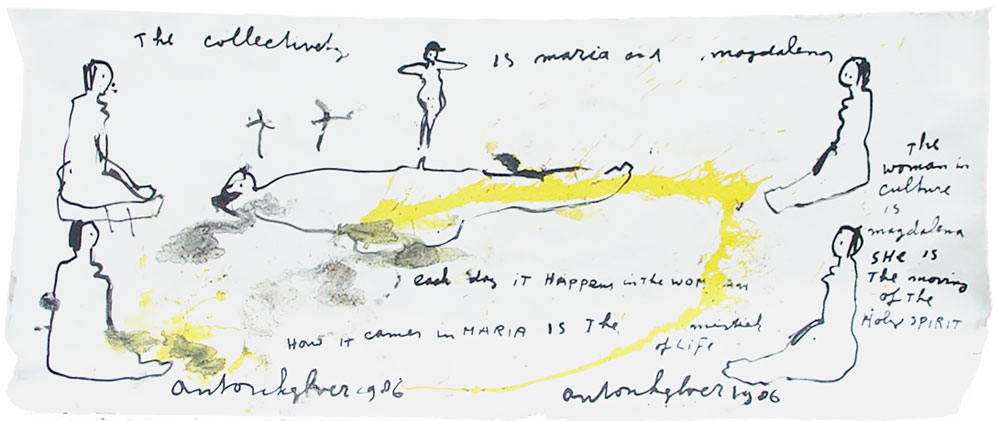 The collectivety is maria and magdalena
The
woman in
culture
is
magdalena
SHe IS
The moving
of the
Holy SPIRIT
each day iT HAPPens in the WOMan
HOW IT comes in MARIA IS The
of LIFE
antonheyboer 1986 antonheyboer 1986